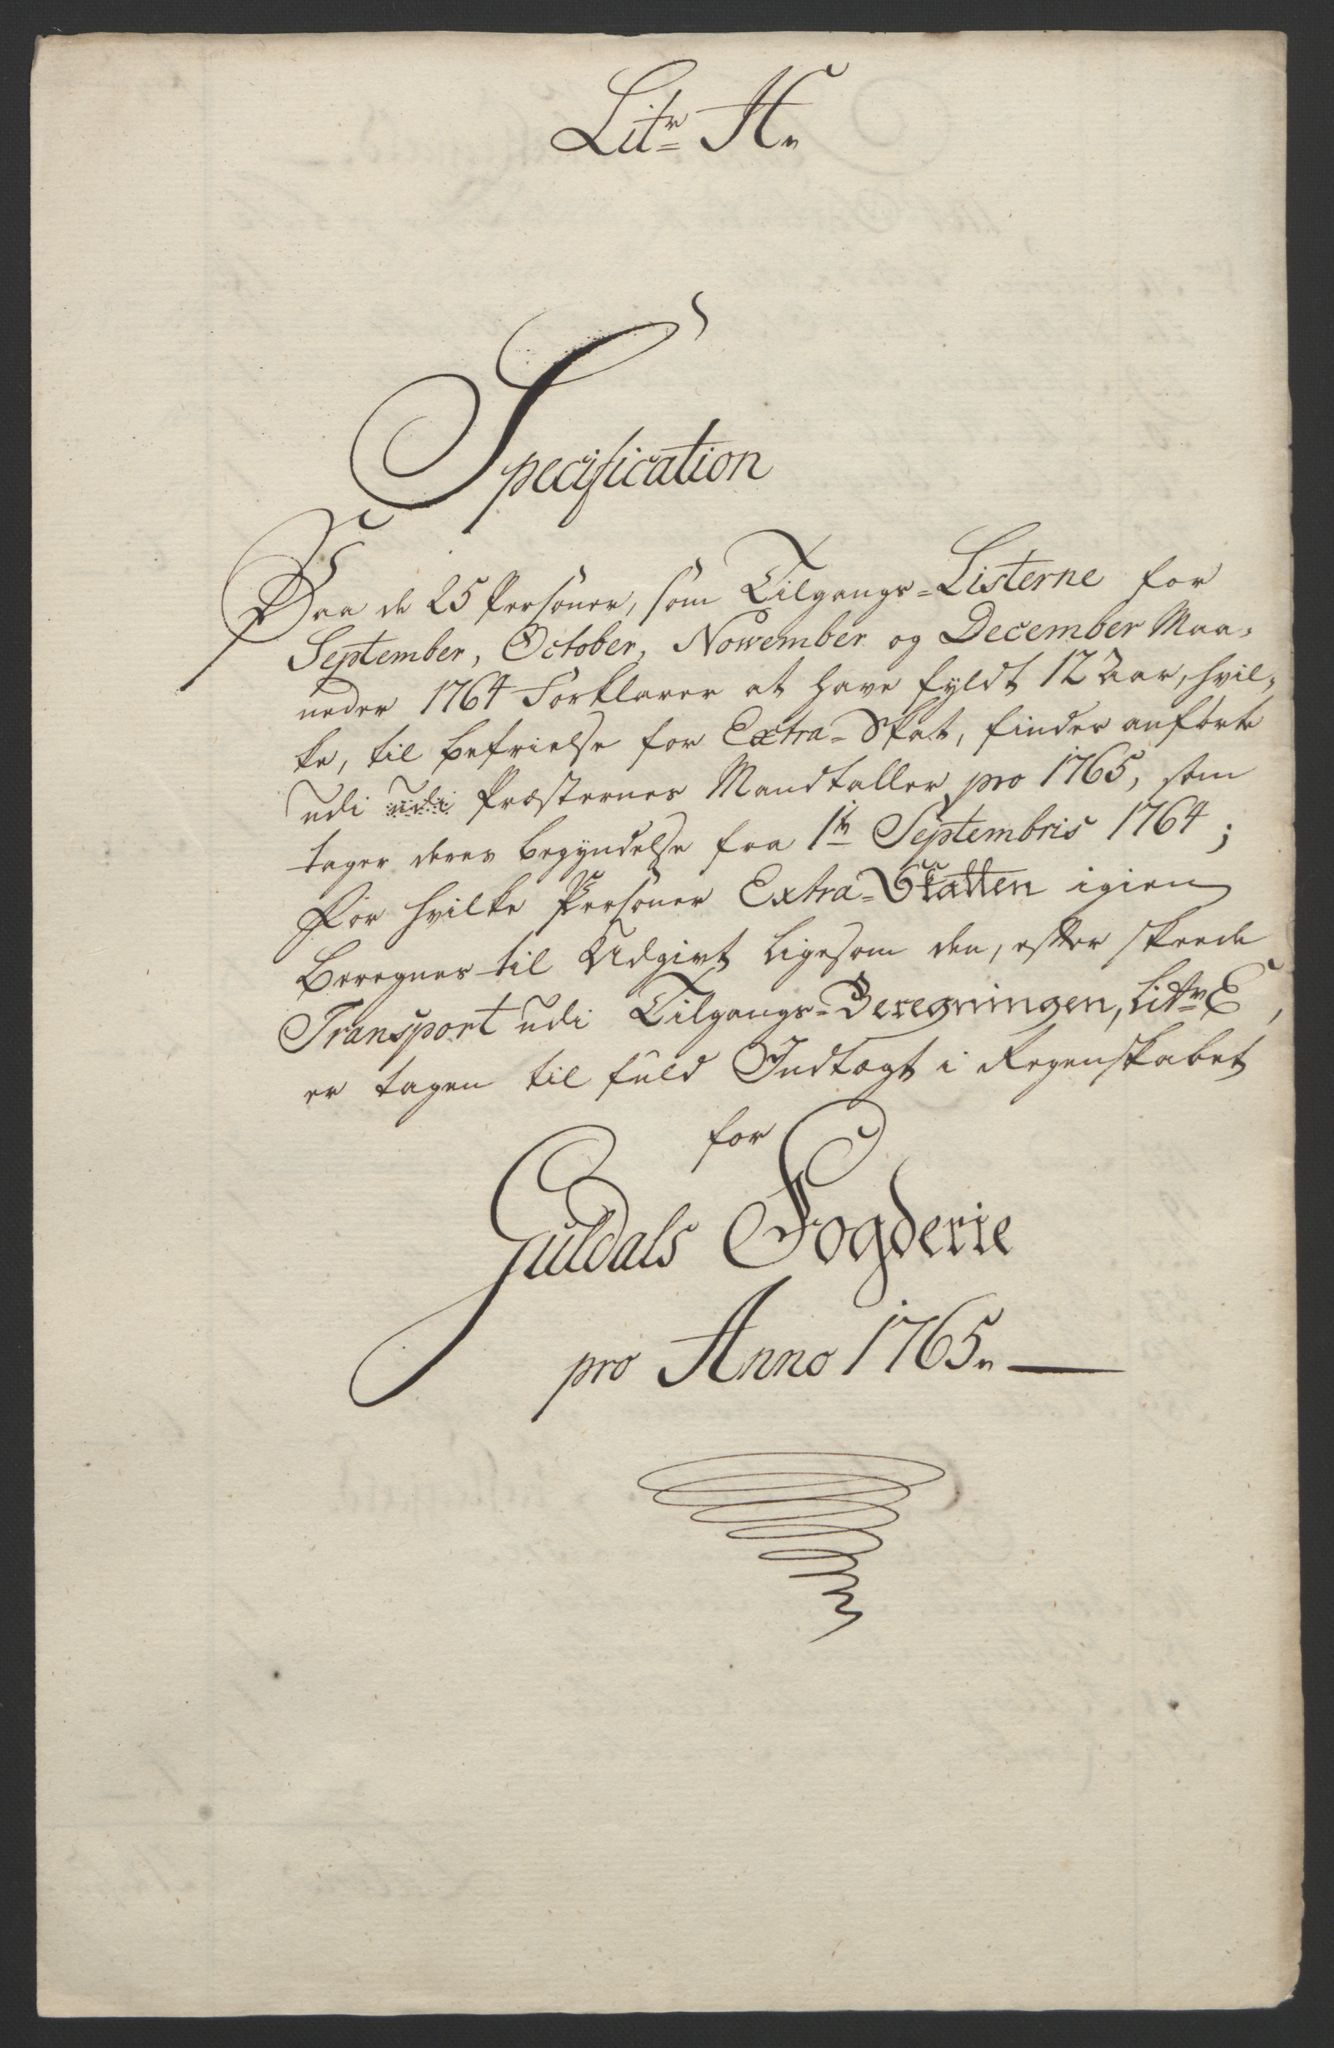 Litr H.
Specification
Paa de 25 Personer, som Tilgangs=Listerne for
September, October, Nowember og December Maa=
neder 1764 Forklarer at have fyldt 12 Aar, hvil=
ke, til befrielse for Extra=Skat, findes anførte
udi udi Præsternes Mandtaller pro 1765, som
tager deres begyndelse fra 1te Septembris 1764;
For hvilke Personer Extra=Skatten igien
beregnes til Udgivt ligesom den, efter skeede
Transport udi Tilgangs=Beregningen, Littr E,
er tagen til fuld Indtægt i Regenskabet
for
Guldals Fogderie
pro Anno 1765.